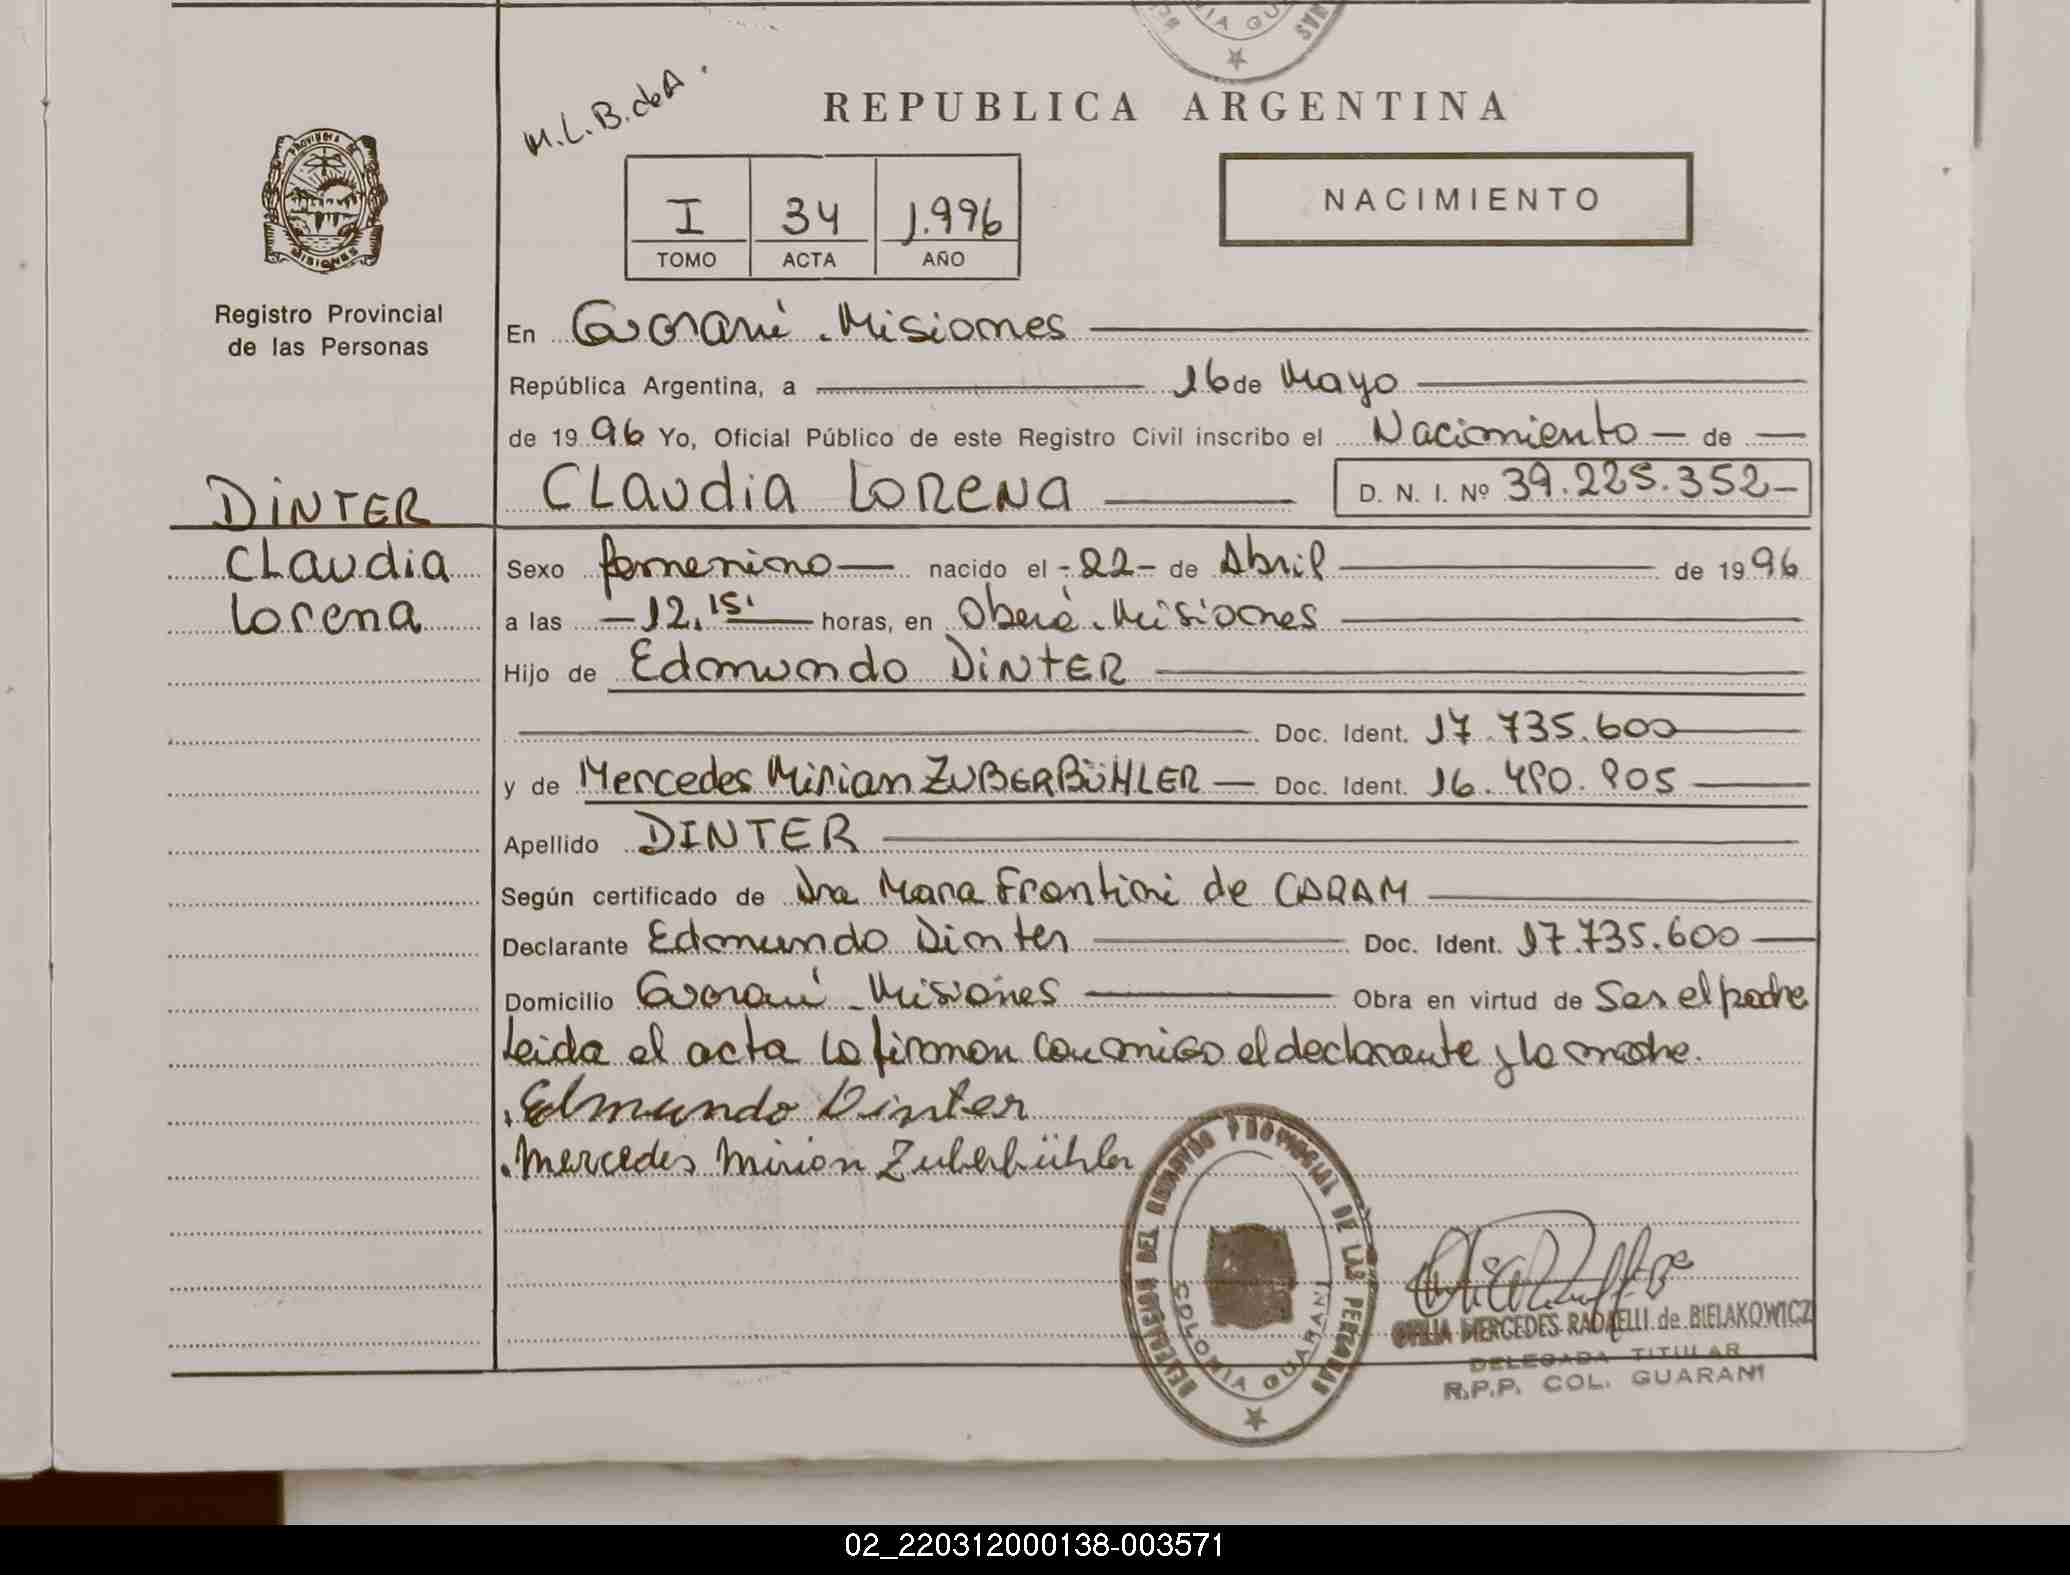 M.L.B.deA.
REPUBLICA ARGENTINA
PROVINCIA DE
MISIONES
I 34 1.996
TOMO ACTA AÑO
NACIMIENTO
Registro Provincial
de las Personas
En Guaraní. Misiones
República Argentina, a 16 de Mayo
de 1996 Yo, Oficial Público de este Registro Civil inscribo el Nacimiento de
DINTER
Claudia
Lorena
CLaudia LORENA D. N. I. Nº 39.225.352-
Sexo femenino nacido el -22- de Abril de 1996
a las -12.15' horas, en Oberá. Misiones
Hijo de Edmundo DINTER
Doc. Ident. 17.735.600
y de Mercedes Mirian ZUBERBÜHLER Doc. Ident. 16.490.905
Apellido DINTER
Según certificado de Dra Mara Frontini de CARAM
Declarante Edmundo Dinter Doc. Ident. 17.735.600
Domicilio Guaraní - Misiones Obra en virtud de Ser el padre
Leida el acta la firman conmigo el declarante y la madre.
.Edmundo Dinter
.Mercedes Mirian Zuberbühler
DELEGACION DEL REGISTRO PROVINCIAL DE LAS PERSONAS
COLONIA GUARANI
OTILIA MERCEDES RADAELLI de BIELAKOWICZ
DELEGADA TITULAR
R.P.P. COL. GUARANI
02_220312000138-003571